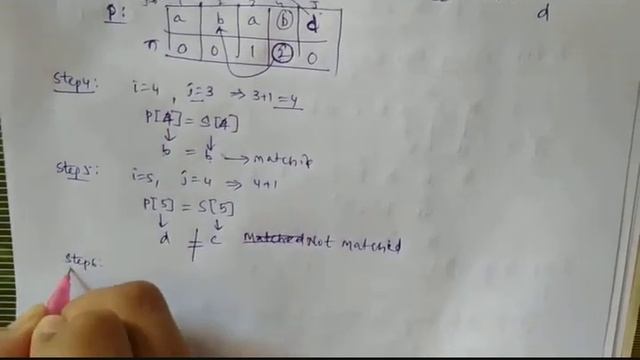 P: a b a b d
d
π 0 0 1 2 0
Step4: i=4, j=3 ⇒ 3+1=4
P[4] = S[4]
↓ ↓
b = b → matched
Step5: i=5, j=4 ⇒ 4+1
P[5] = S[5]
↓ ↓
d ≠ c Matched Not matched
Step6: